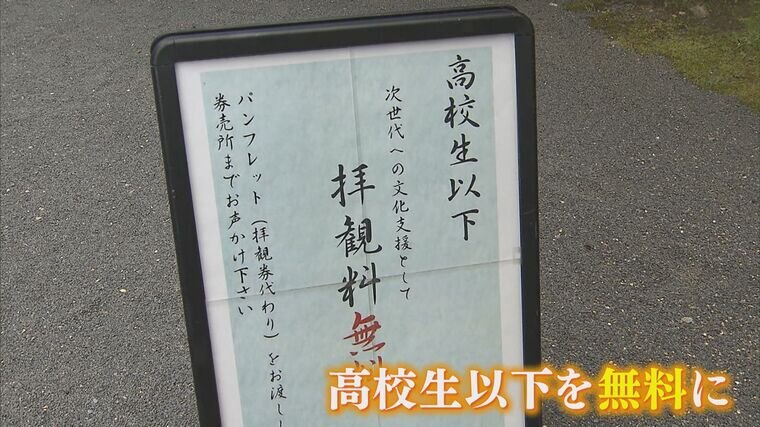 高校生以下
次世代への文化支援として
拝観料無
パンフレット(拝観券代わり)をお渡しし
券売所までお声かけ下さい
高校生以下を無料に